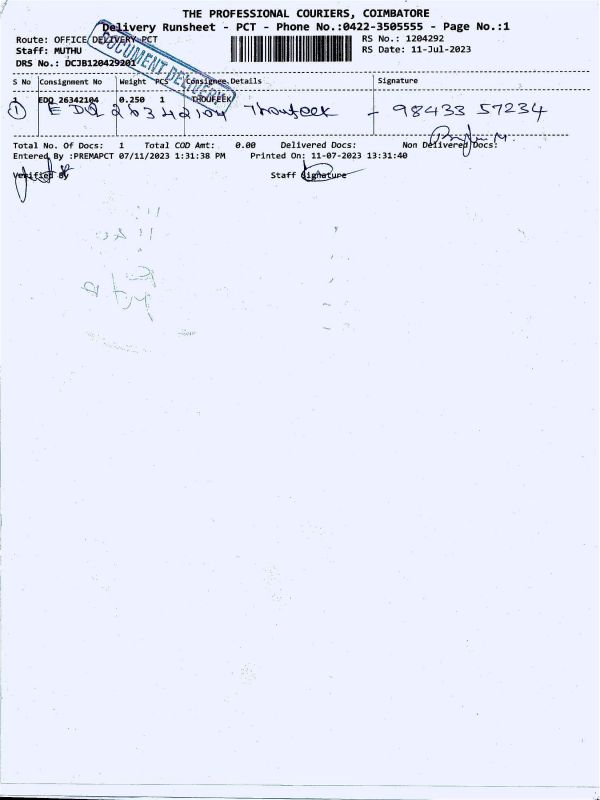 THE PROFESSIONAL COURIERS, COIMBATORE
Delivery Runsheet - PCT - Phone No.:0422-3505555 - Page No.:1
Route: OFFICE DELIVERY PCT
RS No.: 1204292
Staff: MUTHU
RS Date: 11-Jul-2023
DRS No.: DCJB120429201
DOCUMENT DELIVERY
S No Consignment No Weight PCS Consignee Details Signature
1 EDQ 26342104 0.250 1 THOUFEEK
1 EDQ 26342104 Thoufeek - 98433 57234
Total No. Of Docs: 1 Total COD Amt: 0.00 Delivered Docs: Non Delivered Docs:
Entered By :PREMAPCT 07/11/2023 1:31:38 PM Printed On: 11-07-2023 13:31:40
Verified By Staff Signature